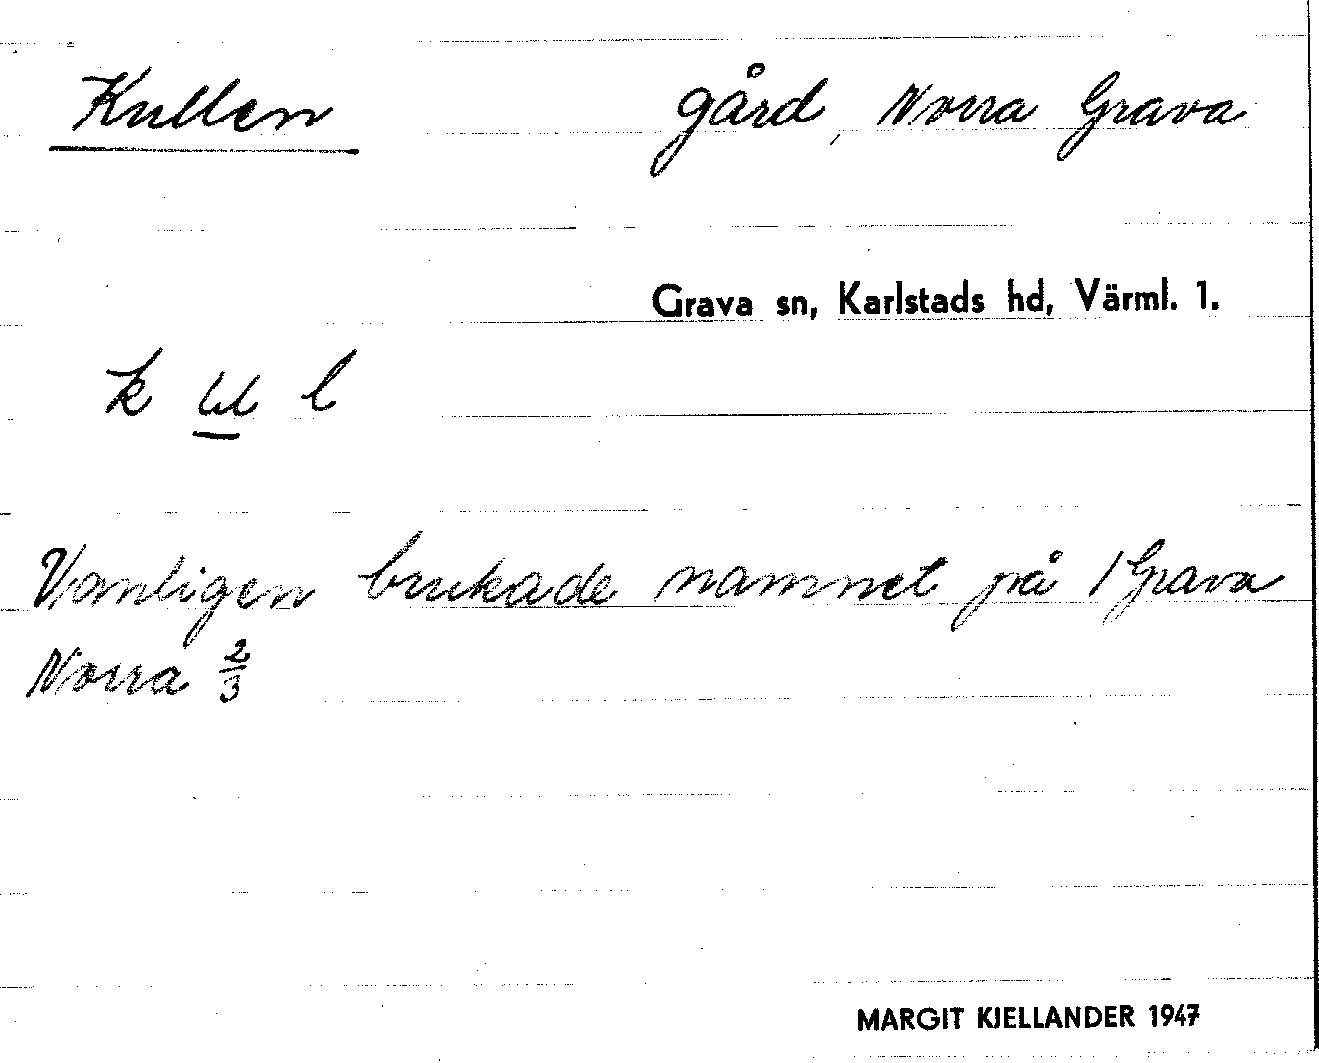 Kullen gård, Norra Grava
Grava sn, Karlstads hd, Värml. 1.
k l
Vanligen brukade namnet på 1 Grava
Norra 2/3
MARGIT KJELLANDER 1947